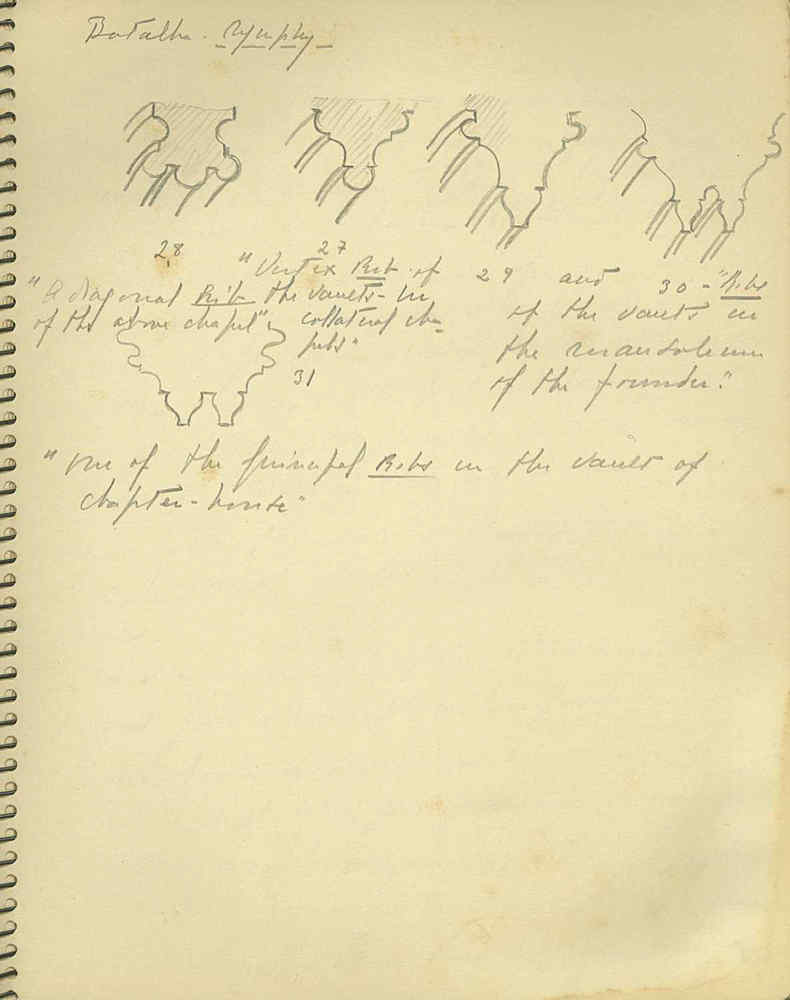 Batalha.
28
"A diagonal Rib
of the above chapel"
27
"Vertex Rib of
the vaults - in
collateral cha-
pels"
29 and 30 - "Ribs
of the vaults in
the mausoleum
of the founder."
31
"One of the principal Ribs in the vault of
chapter-house"